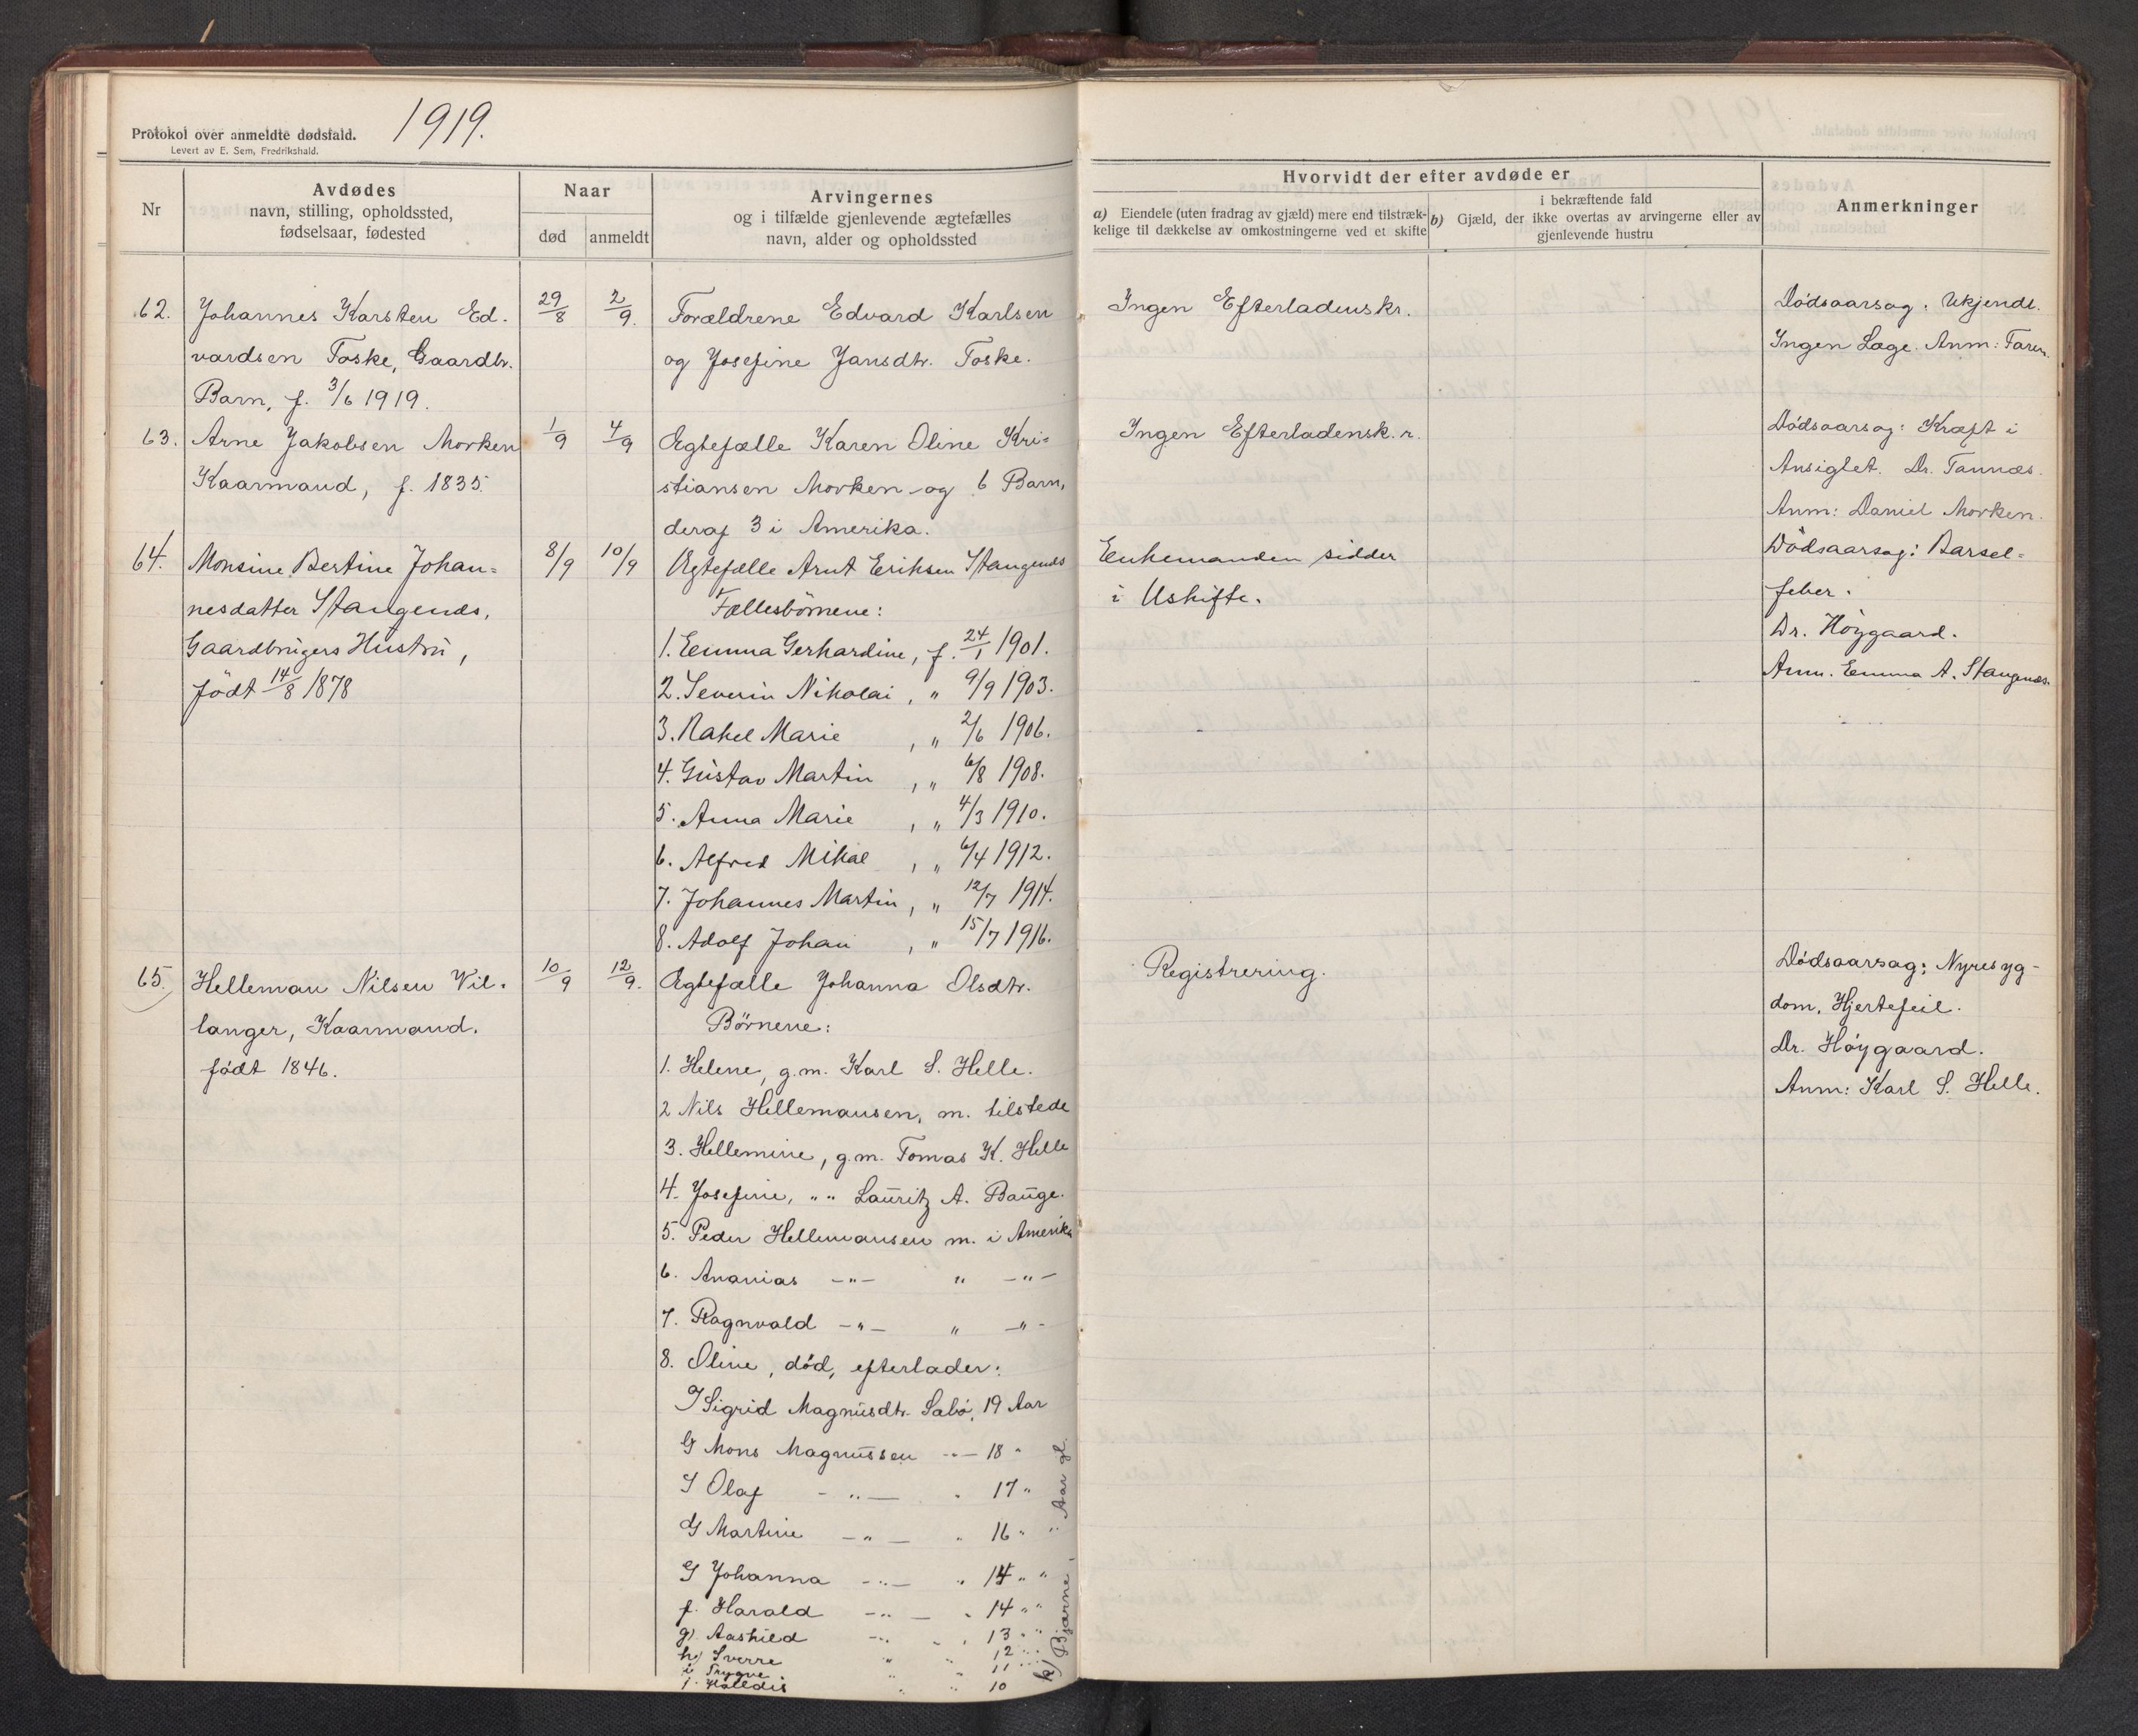 Protokol over anmeldte dødsfald. 1919.
Levert av E. Sem, Fredrikshald.
Nr
Avdødes
navn, stilling, opholdssted,
fødselsaar, fødested
Naar
død anmeldt
Arvingernes
og i tilfælde gjenlevende ægtefælles
navn, alder og opholdssted
Hvorvidt der efter avdøde er
a) Eiendele (uten fradrag av gjæld) mere end tilstræk-
kelige til dækkelse av omkostningerne ved et skifte
i bekræftende fald
b) Gjæld, der ikke overtas av arvingerne eller av
gjenlevende hustru
Anmerkninger
62. Johannes Karsten Ed-
vardsen Toske, Gaardbr.
Barn, f. 3/6 1919.
29/8 2/9.
Forældrene Edvard Karlsen
og Josefine Jansdtr. Toske.
Ingen Efterladenskr.
Dödsaarsag: Ukjendt.
Ingen Læge. Anm: Faren.
63. Arne Jakobsen Morken
Kaarmand, f. 1835.
1/9 4/9
Ægtefælle Karen Oline Kri-
stiansen Morken og 6 Barn,
deraf 3 i Amerika.
Ingen Efterladensk.r.
Dödsaarsag: Kræft i
Ansigtet. Dr. Tannæs.
Anm: Daniel Morken.
64. Monsine Bertine Johan-
nesdatter Stangenæs,
Gaardbrugers Hustru,
födt 14/8 1878
8/9 10/9
Ægtefælle Arnt Eriksen Stangenæs
Fællesbörnene:
1. Emma Gerhardine, f. 24/1 1901.
2. Severin Nikolai, " 9/9 1903.
3. Rakel Marie, " 2/6 1906.
4. Gustav Martin, " 6/8 1908.
5. Anna Marie, " 4/3 1910.
6. Alfred Mikal, " 6/4 1912.
7. Johannes Martin, " 12/7 1914.
8. Adolf Johan, " 15/7 1916.
Enkemanden sidder
i Uskifte.
Dödsaarsag: Barsel-
feber.
Dr. Höygaard.
Anm. Emma A. Stangenæs.
65. Helleman Nilsen Vil-
langer, Kaarmand.
födt 1846.
10/9 12/9.
Ægtefælle Johanna Olsdtr.
Börnene:
1. Helene, g.m. Karl S. Helle.
2 Nils Hellemansen, m. tilstede
3. Hellemine, g.m. Tomas K. Helle
4. Josefine, " " Lauritz A. Bauge.
5. Peder Hellemansen m. i Amerika
6. Ananias —"— " —"—
7. Ragnvald —"— " —"—
8. Oline, död, efterlader:
Sigrid Magnusdtr. Sabö, 19 Aar
Mons Magnussen —"— 18 "
Olaf —"— " 17 "
Martine —"— " 16 "
Johanna —"— " 14 " "
f. Harald —"— " 14 " "
g). Aashild —"— " 13 " "
h.) Sverre " " 12 " "
i Trygve. " " 11 " "
j. Halldis " " 10
k) Bjarne, " Aar gl.
Registrering.
Dödsaarsag: Nyresyg-
dom, Hjertefeil.
Dr. Höygaard.
Anm: Karl S. Helle.